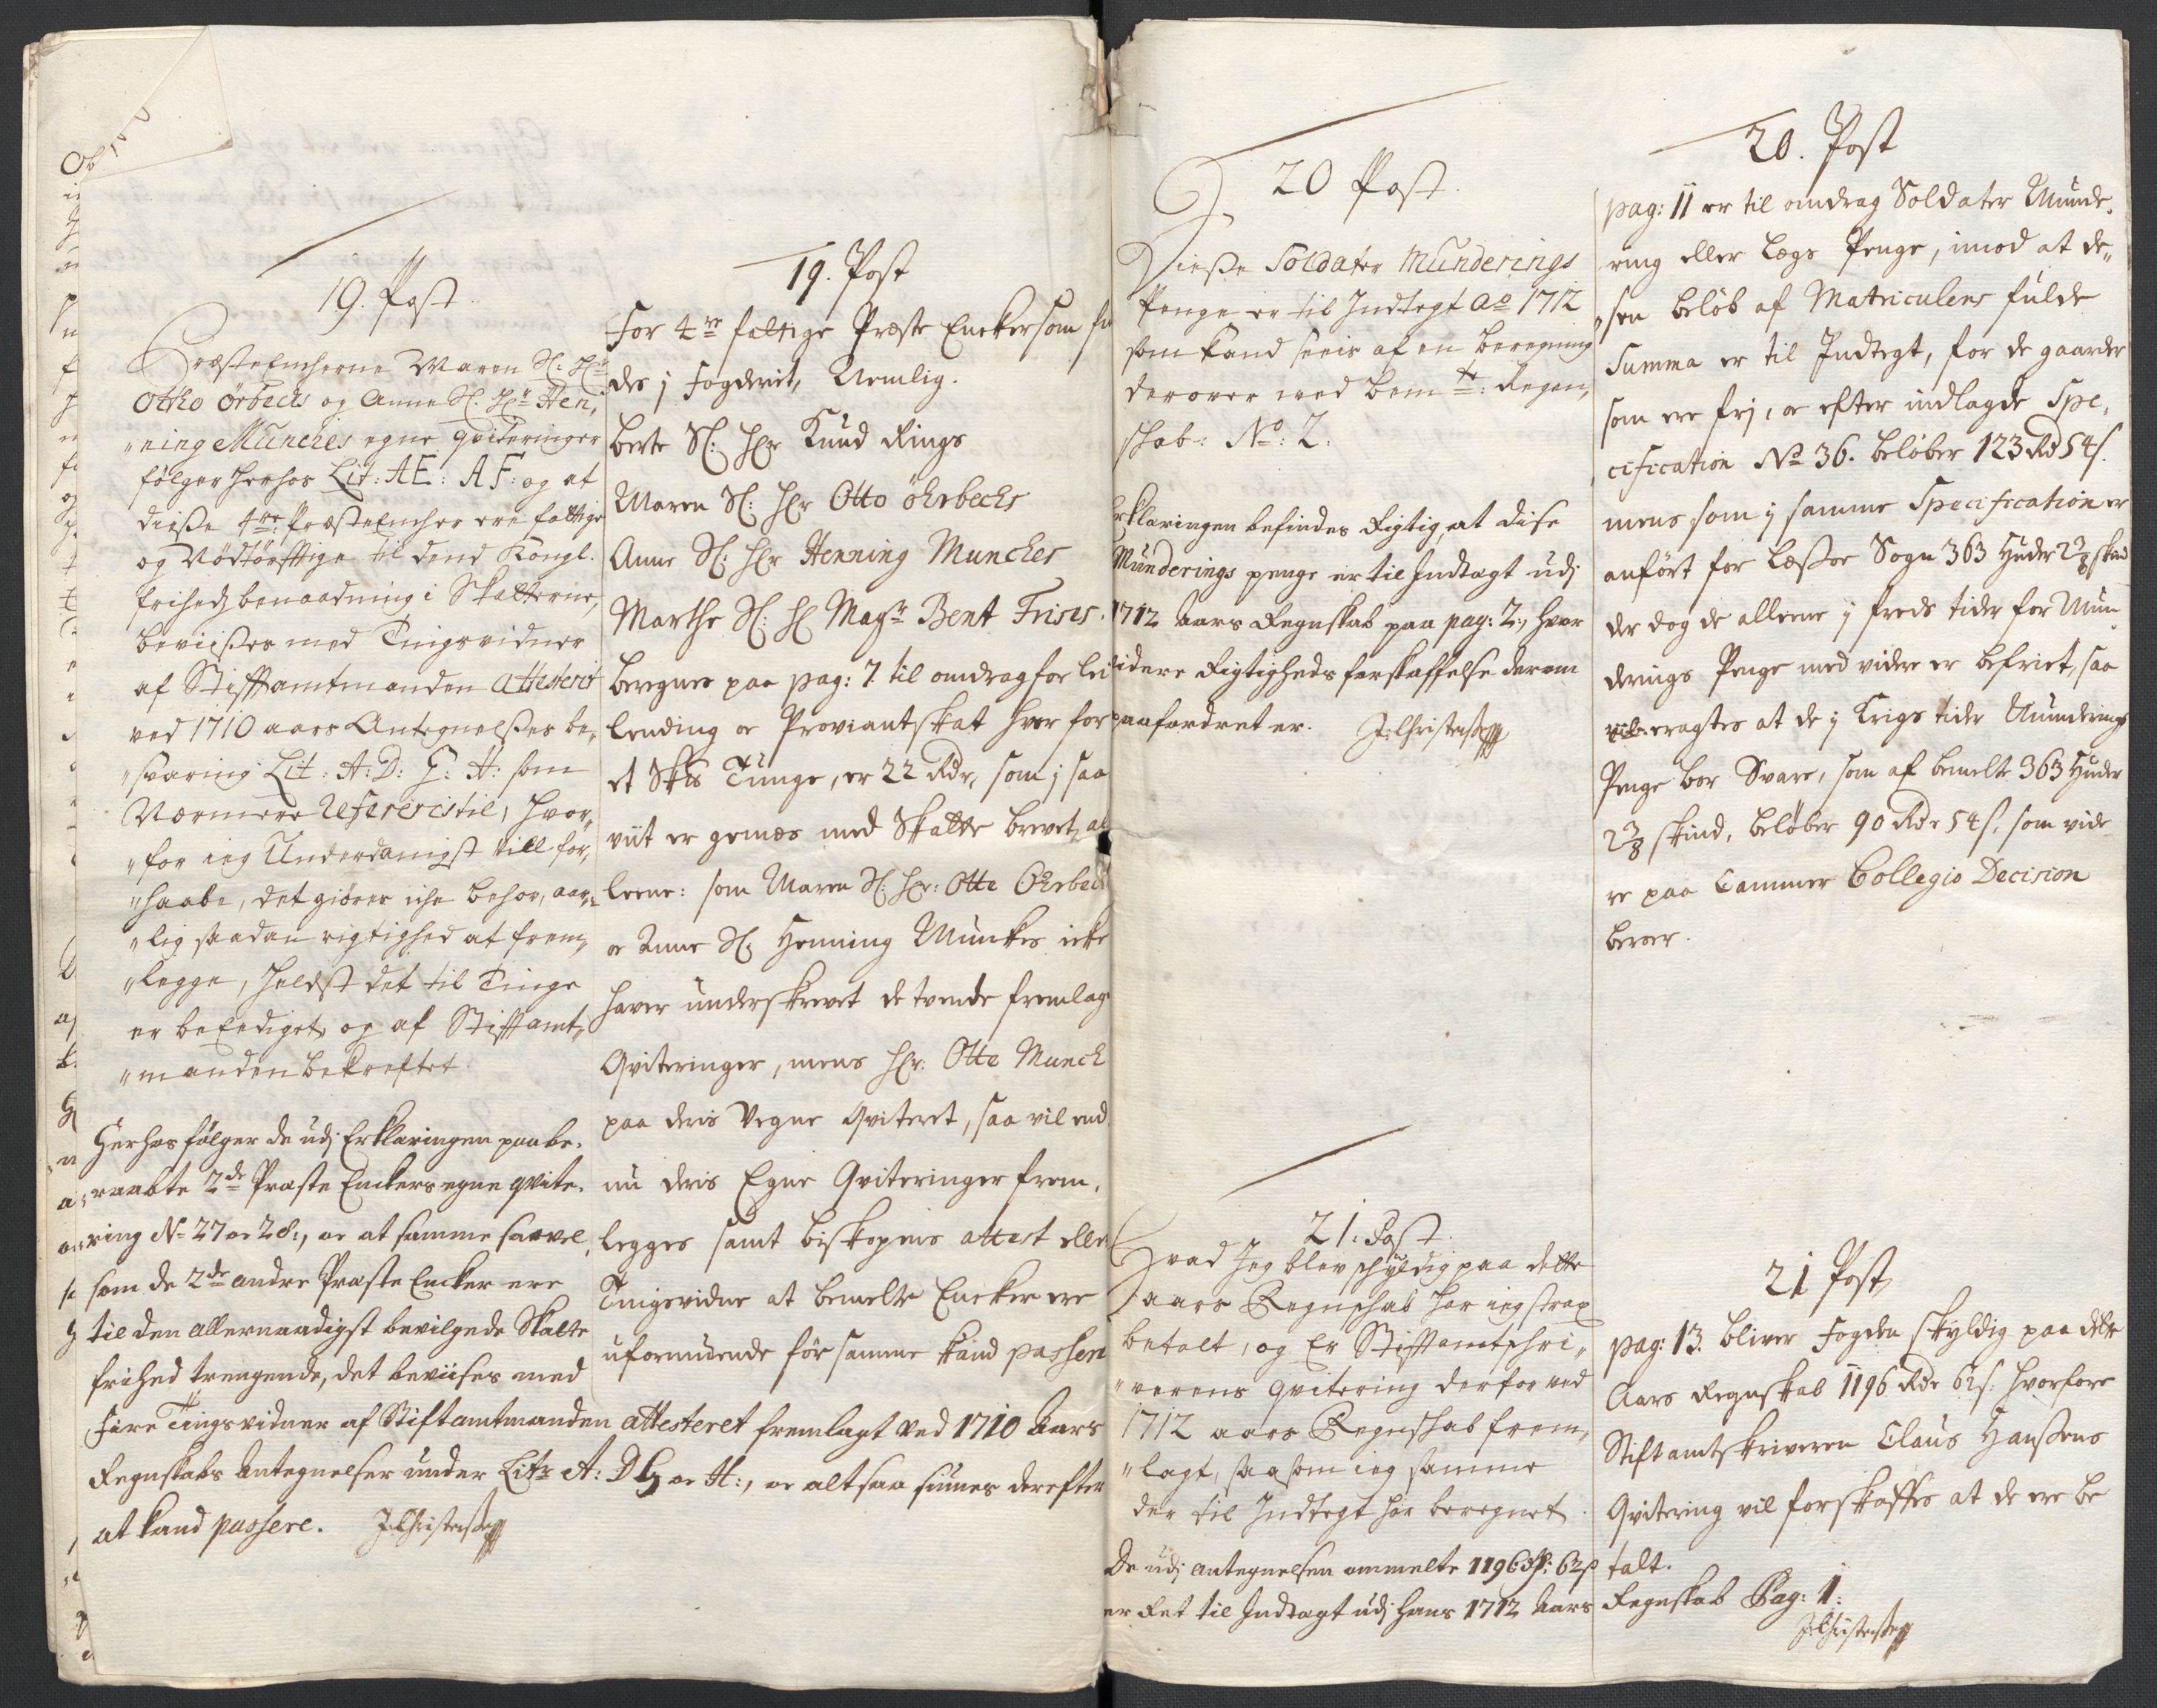 19. Post
Præsteencherne Maren Sl: Hr:
Otho Örbecks og Anne Sl. Hr: Hen,
"ning Munches egne qviteringer
følger herhos Lit: AE: AF: og at
diesse 4re Præsteencher ere fattige
og Nødtørfftige til dend Kongl.
friheds benaadning i Skatterne,
bevisses med Tingsvidner
af Stifftamtmanden attesterit
ved 1710 aars Antegnelsses be,
"svaring Lit: A: D: G: H: som
Nærmere refereris til, hvor,
"for ieg Underdanigst vill for,
"haabe, det giøres iche behov, aar,
"lig saadan rigtighed at frem,
"legge, heldst det til Tinge
er beEdiget, og af Stifftamt,
"manden bekrefftet.
Herhos følger de udj Erklaringen paabe,
raabte 2de Præste Enckers egne qvite,
ring No 27 oc 28:, oc at samme saavel,
som de 2de andre Præste Encker ere
til den allernaadigst bevilgede Skatte
frihed trengende, det beviises med
fire Tingsvidner af Stiftamtmanden attesteret fremlagt ved 1710 Aars
Regnskabs Antegnelser under Litr A: D G oc H:, oc altsaa siunes derefter
at kand passere.
19. Post
For 4re fattige Præste Encker som fin
des j Fogderit, Nemlig.
berte Sl: Hr Knud Rings
Maren Sl: Hr Otto öhrbechs
Anne Sl: Hr Henning Munches
Marthe Sl: H Magr Bent Frises.
beregnes paa pag: 7 til omdrag for lei
lending oc Proviantskat hver for
et Skis Tunge, er 22 Rdr, som j saa
viit er gemæs med Skatte brevet, al
leene: som Maren Sl: Hr: Otte Öhrbech
oc Anne Sl: Henning Munkes icke
haver underskrevet de tvende fremlagde
Qviteringer, mens Hr: Otte Munch
paa deris Vegne Qviteret, saa vil end
nu deris Egne Qviteringer frem,
legges samt biskopens attest eller
Tingsvidne at bemelte Encker ere
uformuende før samme kand passere
20 Post.
Diesse Soldater Munderings
Penge er til Indtegt Ao 1712
som kand seeis af en beregning
derover ved bemte: Regen,
skab: No: 2.
Erklaringen befindes Rigtig, at dise
Munderings penge er til Indtægt udj
1712 Aars Regnskab paa pag: 2:, hvor
videre Rigtigheds forskaffelse derom
paafordret er.
21: Post.
Hvad Jeg blev schyldig paa dette
aars Regnschab har ieg strax
betalt, og Er Stifftamtschri,
"verens qvitering derfor ved
1712 aars Regnschab frem,
"lagt, saasom ieg samme
der til Indtegt har beregnet.
De udj antegnelsen ommelte 1196 Rdr: 62 s
er ret til Indtægt udj hans 1712 Aars Regnskab Pag: 1:
20. Post
pag: 11 er til omdrag Soldater Munde,
ring eller Legs Penge, imod at de,,
"sen beløb af Matriculens fulde
Summa er til Indtegt, for de gaarder
som ere frj, oc efter indlagde Spe,
cification No 36. beløber 123 Rd 54 s.
mens som j samme Specification er
anført for Læssøe Sogn 363 Huder 2 3/8 skind
der dog de alleene j freds tider for Mun,
derings Penge med videre er befriet, saa
eragtes at de j Krigs tider Munderings
Penge bør Svare, som af bemelte 363 Huder
2 3/8 skind, beløber 90 Rdr 54 s, som vide
re paa Cammer Collegio Decision
beroer.
21 Post,
pag: 13. bliver Fogden skyldig paa dette
Aars Regnskab 1196 Rdr 62 s. hvorfore
Stiftamtskriveren Claus Hanssens
Qvitering vil forskaffes at de ere be
talt.